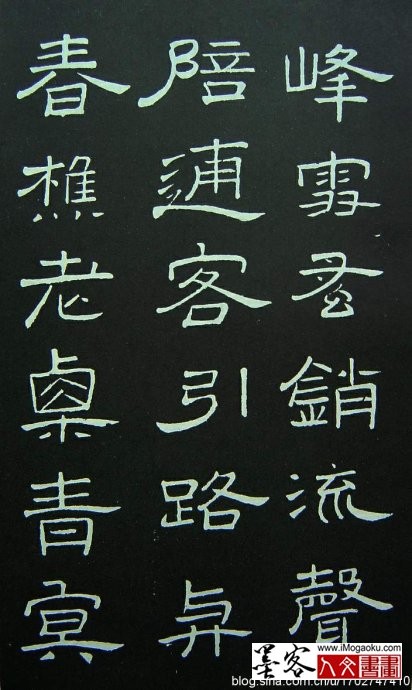 峰雪蚤銷流聲
陪逋客引路与
春樵老㮚青冥
www.iMogaoku.com
墨客
人文書畫
blog.sina.com.cn/u/1702747410